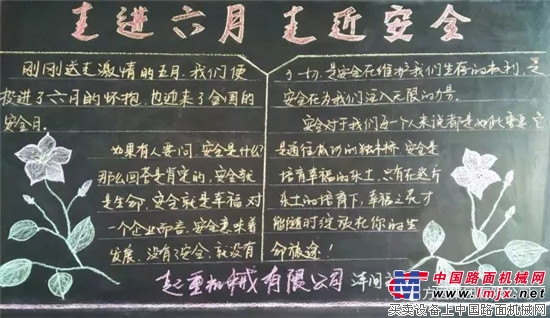 走进六月 走近安全
刚刚送走激情的五月,我们便
投进了六月的怀抱,也迎来了全国的
安全月。
如果有人要问,安全是什么?
那么回答是肯定的,安全就
是生命,安全就是幸福,对
一个企业而言,安全意味着
发展,没有了安全,就没有
了一切,是安全在维护我们生存的权利,是
安全在为我们注入无限的力量。
安全对于我们每一个人来说都是如此重要,它
是通往成功的独木桥,安全是
培育幸福的乐土,只有在这片
乐土的培育下,幸福之花才
能随时绽放在你的生
命旅途!
起重机械有限公司 洋间
中国路面机械网
www.lmjx.net
买卖设备上中国路面机械网